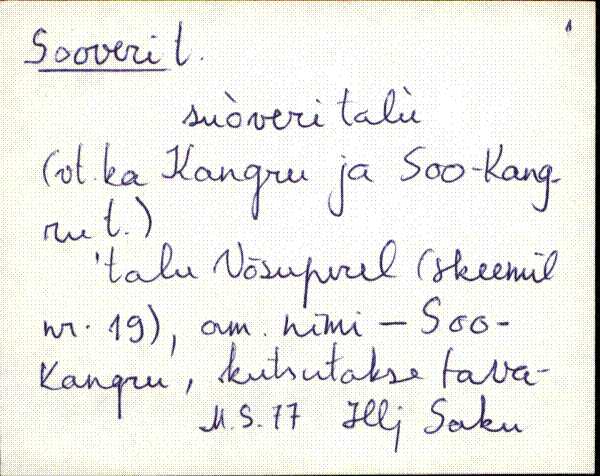 1
Sooveri t.
suòveri talù
(vt. ka Kangru ja Soo-Kang-
ru t.)
'talu Võsuperel (skeemil
nr. 19), am. nimi – Soo-
Kangru, kutsutakse tava-
M.S. 77 Hlj Saku